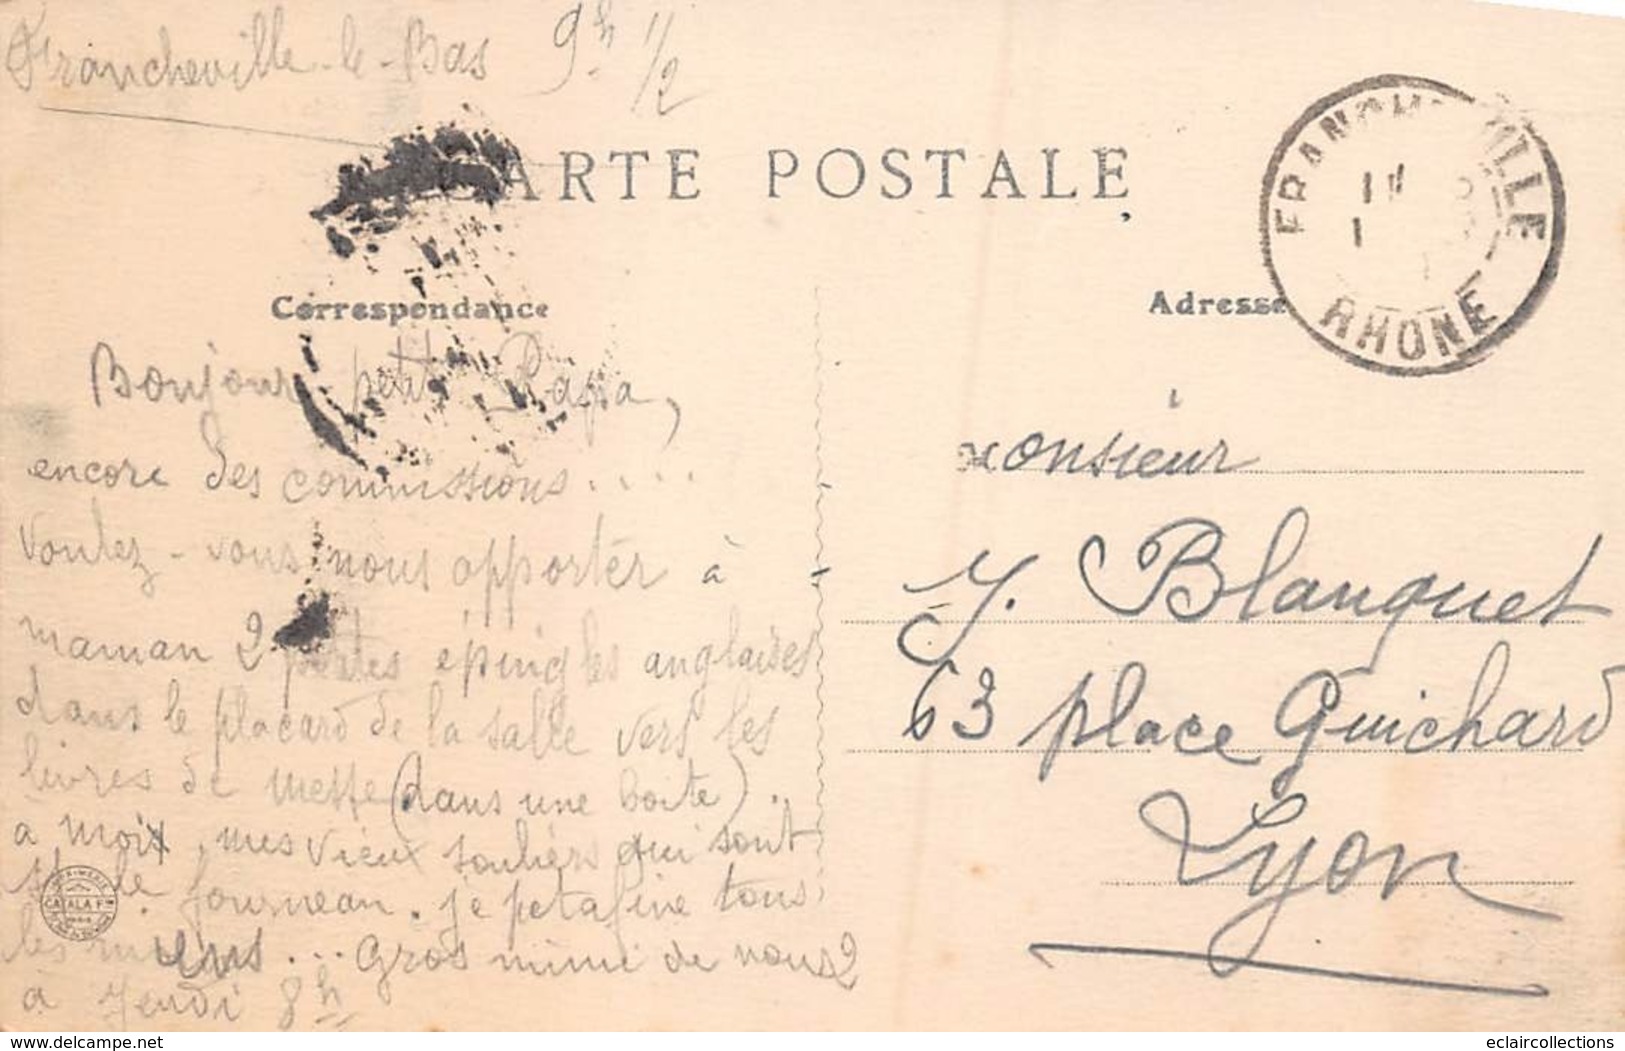 Francheville-le-Bas 9h 1/2
CARTE POSTALE
FRANCHEVILLE
RHONE
Correspondance
Adresse
Bonjour petit Papa,
encore des commissions....
voulez-vous nous apporter à
maman 2 petites épingles anglaises
dans le placard de la salle vers les
livres de messe (dans une boite).
a moi, mes vieux souliers qui sont
sur le fourneau. je petafine tous
les miens... Gros mimi de nous 2
à Jeudi 8h
Monsieur
J. Blanquet
63 place Guichard
Lyon
IMPRIMERIE
CATALA Frs
delcampe.net
eclaircollections